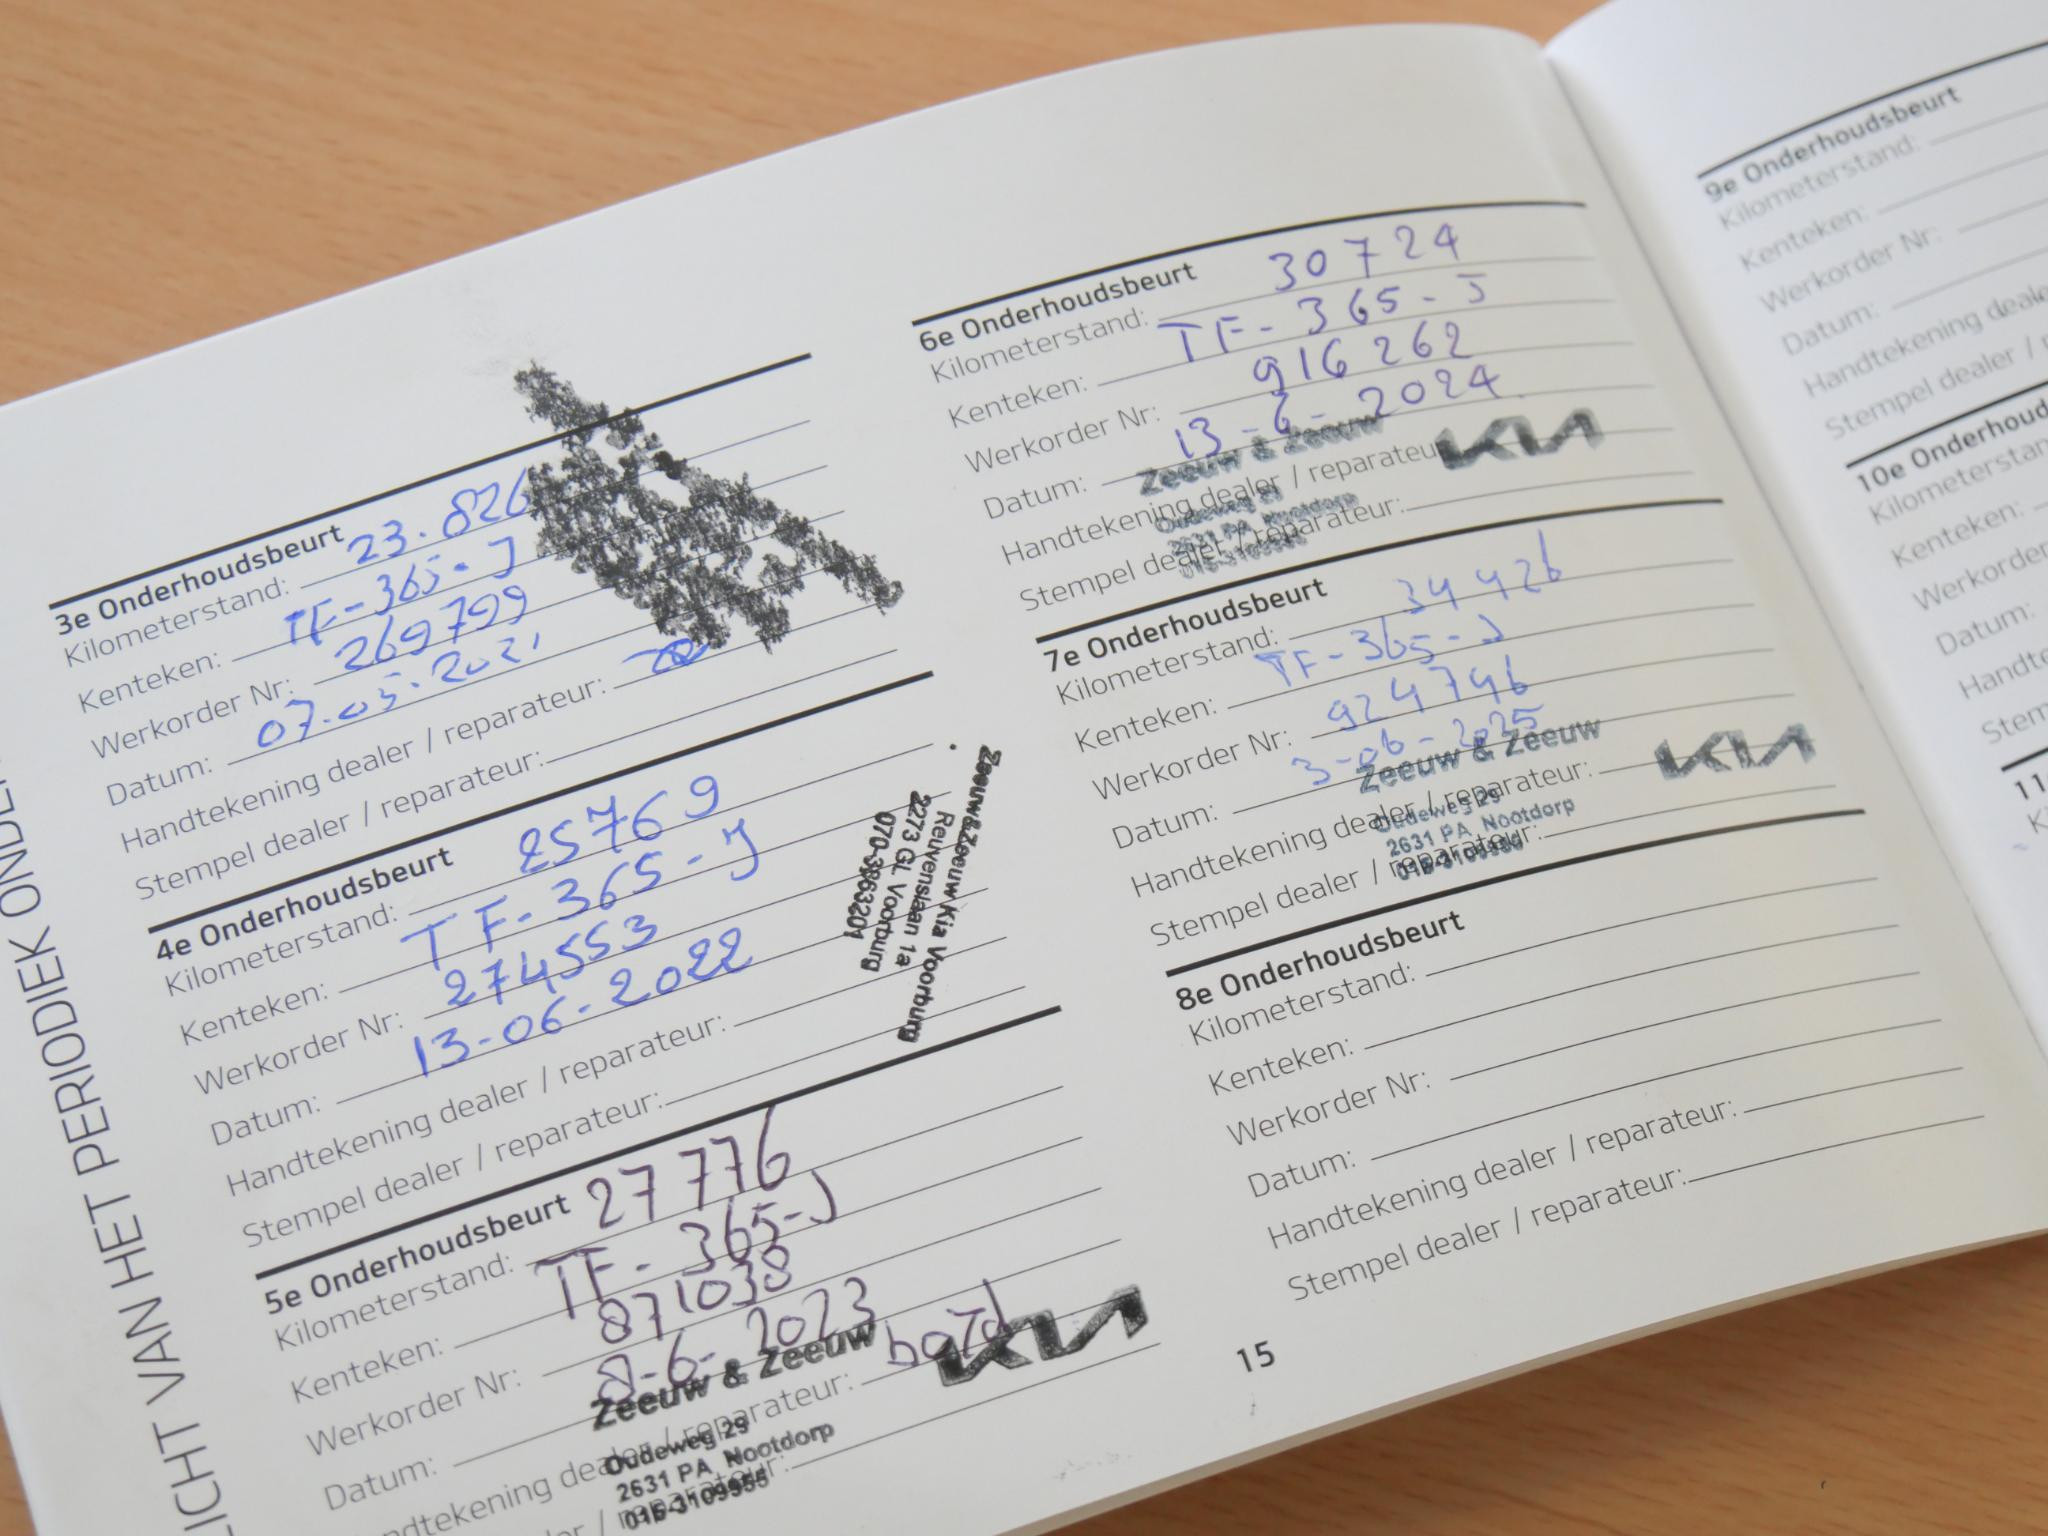 LICHT VAN HET PERIODIEK ONDE
3e Onderhoudsbeurt
Kilometerstand: 23.826
Kenteken: TF-365-J
Werkorder Nr: 269799
Datum: 07-05-2021
Handtekening dealer / reparateur:
Stempel dealer / reparateur:
4e Onderhoudsbeurt
Kilometerstand: 25769
Kenteken: TF-365-J
Werkorder Nr: 274553
Datum: 13-06-2022
Handtekening dealer / reparateur:
Stempel dealer / reparateur:
Zeeuw&Zeeuw Kia Voorburg
Reuvenslaan 1a
2273 GL Voorburg
070-3863201
5e Onderhoudsbeurt
Kilometerstand: 27776
Kenteken: TF-365-J
Werkorder Nr: 871038
Datum: 8-6-2023
Handtekening dealer / reparateur:
reparateur:
Zeeuw & Zeeuw KIA
Oudeweg 29
2631 PA Nootdorp
015-3109955
6e Onderhoudsbeurt
Kilometerstand: 30724
Kenteken: TF-365-J
Werkorder Nr: 916262
Datum: 13-6-2024
Handtekening dealer / reparateur:
Stempel dealer / reparateur:
Zeeuw & Zeeuw KIA
Oudeweg 29
2631 PA Nootdorp
7e Onderhoudsbeurt
Kilometerstand: 34426
Kenteken: TF-365-J
Werkorder Nr: 924746
Datum: 3-06-2025
Handtekening dealer / reparateur:
Stempel dealer / reparateur:
Zeeuw & Zeeuw KIA
Oudeweg 29
2631 PA Nootdorp
015-3109955
8e Onderhoudsbeurt
Kilometerstand:
Kenteken:
Werkorder Nr:
Datum:
Handtekening dealer / reparateur:
Stempel dealer / reparateur:
15
9e Onderhoudsbeurt
Kilometerstand:
Kenteken:
Werkorder Nr:
Datum:
Handtekening deale
Stempel dealer /
10e Onderhoud
Kilometerstan
Kenteken:
Werkorde
Datum:
Handte
Stem
11